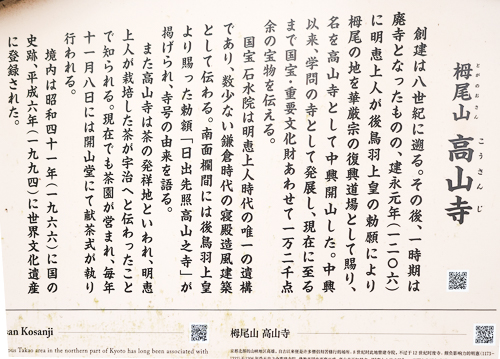 栂尾山 高山寺
とがのおさん こうさんじ
創建は八世紀に遡る。その後、一時期は
廃寺となったものの、建永元年（一二〇六）
に明恵上人が後鳥羽上皇の勅願により
栂尾の地を華厳宗の復興道場として賜り、
名を高山寺として中興開山した。中興
以来、学問の寺として発展し、現在に至る
まで国宝・重要文化財あわせて一万二千点
余の宝物を伝える。
国宝 石水院は明恵上人時代の唯一の遺構
であり、数少ない鎌倉時代の寝殿造風建築
として伝わる。南面欄間には後鳥羽上皇
より賜った勅額「日出先照高山之寺」が
掲げられ、寺号の由来を語る。
また高山寺は茶の発祥地といわれ、明恵
上人が栽培した茶が宇治へと伝わったこと
で知られる。現在でも茶園が営まれ、毎年
十一月八日には開山堂にて献茶式が執り
行われる。
境内は昭和四十一年（一九六六）に国の
史跡、平成六年（一九九四）に世界文化遺産
に登録された。
san Kosanji
Takao area in the northern part of Kyoto has long been associated with
栂尾山 高山寺